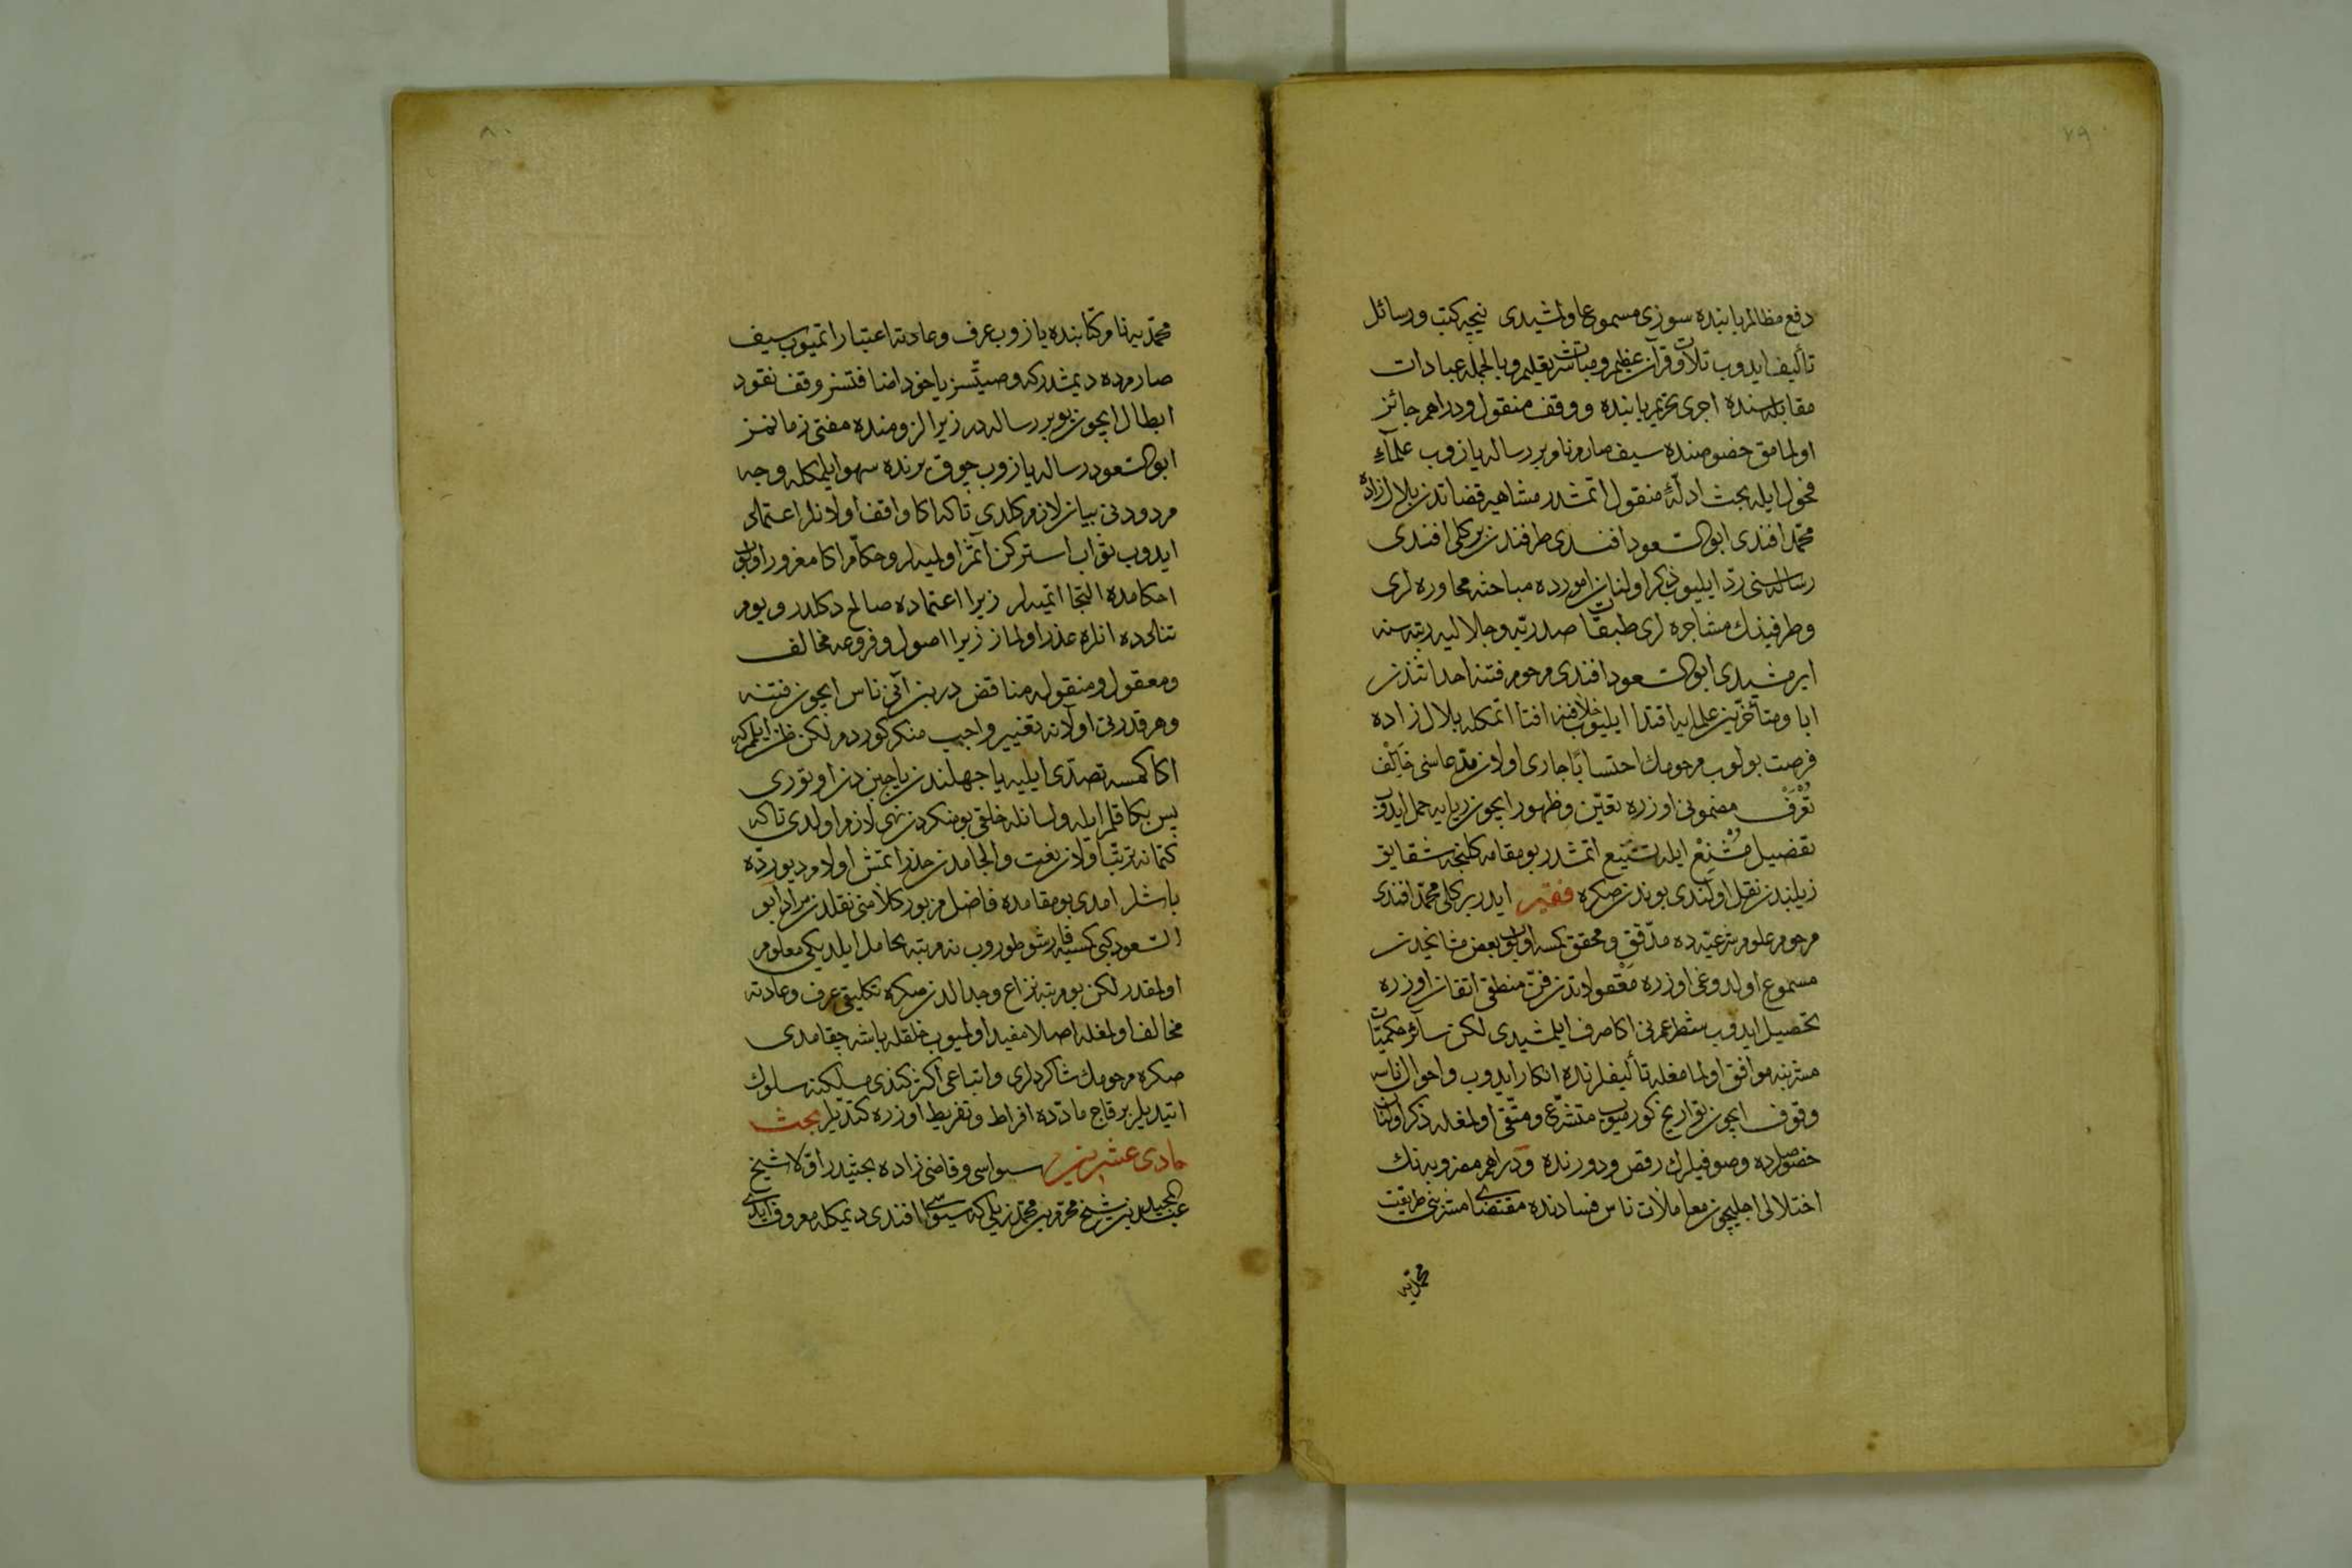 ٧٩
دفع مظالم بابنده سوزی مسموع اولمشیدی نیجه کتب و رسائل
تألیف ایدوب تلاوت قرآن عظیم و مباشرت تعلیم و بالجمله عبادات
مقابله سنده اجری تحریم بابنده و وقف منقول و دراهم جائز
اولمامق خصوصنده سیف صارم نام بر رساله یازوب علمآء
فحول ایله بحث ادلّۀ منقول اتمشدر مشاهیر قضاتدن بلال زاده
محمّد افندی ابو السّعود افندی طرفندن برکلی افندی
رساله سنی ردّ ایلیوب ذکر اولنان امورده مباحثه محاوره لری
و طرفینك مشاجره لری طبقات صدریّه و جلالیه رتبه سنه
ایرمشیدی ابو السّعود افندی مرحوم فتنه احداثندن
ابا و متأخّرین علمایه اقتدا ایلیوب خلافنه افتا اتمکله بلال زاده
فرصت بولوب مرحومك احتسابًا جاری اولان مدّعاسنی خَالِفْ
تُعْرَفْ مضمونی اوزره تعیّن و ظهور ایچون ریایه حمل ایدوب
تفضیل مُشْنِعْ ایله تشنیع اتمشدر بو مقامه کلنجه شقایق
ذیلندن نقل اولندی بوندن صکره فقیر ایدر برکلی محمّد افندی
مرحوم علوم شرعیّه ده مدقّق و محقق کمسه اولوب بعض مشایخدن
مسموع اولدوغی اوزره معقولاتدن فنّ منطقی اتقان اوزره
تحصیل ایدوب شطر عمرنی اکا صرف ایلمشیدی لکن سائر حکمیّات
مشربنه موافق اولمامغله تألیفلرنده انکار ایدوب و احوال ناسه
وقوف ایچون تواریخ کورمیوب متشرّع و متّقی اولمغله ذکر اولنان
خصوصلرده و صوفیلرك رقص و دورنده و دراهم مضروبه نك
اختلالی اجلیچون معاملات ناس فسادنده مقتضای مشربنی طریقت
محمّدیه
٨٠
محمّدیه نام کتابنده یازوب عرف و عادته اعتبار اتمیوب سیف
صارمده دیمشدر که وصیّتسز یا خود اضافتسز وقف نقود
ابطال ایچون بو بر رساله در زیرا لزومنده مفتی زمانمز
ابو السّعود رساله یازوب چوق یرنده سهو ایلمکله وجه
مردودنی بیان لازم کلدی تا که اکا واقف اولانلر اعتماد
ایدوب ثواب استرکن آثم اولمیه لر و حکّام اکا مغرور اولوب
احکامده التجا اتمیه لر زیرا اعتماده صالح دکلدر و یوم
تنادده انلره عذر اولماز زیرا اصول و فروعه مخالف
و معقول و منقوله مناقض در بن آنی ناس ایچون فتنه
و هر قدرتی اولانه تغییر واجب منکر کوردم لکن ظن ایلرم که
اکا کمسه تصدّی ایلیه یا جهلندن یا جبن دن اوتوری
پس بکا قلم ایله و لسانله خلقی بو منکردن نهی لازم اولدی تا که
کتمانه ترتّب اولان لعنت و الجامدن حذر اتمش اولام دیو ردّه
باشلر امدی بو مقامده فاضل مزبور کلامنی نقلدن مراد ابو
السّعود کبی کمسیه قارشو طوروب نه مرتبه تحامل ایلدیکی معلوم
اولمقدر لکن بو مرتبه نزاع و جدالدن صکره تکلیفی عرف و عادته
مخالف اولمغله اصلا مفید اولمیوب خلقله باشه چقامدی
صکره مرحومك شاکردلری و اتباعی اکثر کندی مسلکنه سلوك
ایتدیلر بر قاج مادّده افراط و تفریط اوزره کتدیلر بحث
حادی عشرین سیواسی و قاضی زاده بحثیدر اوّلا شیخ
عبد المجید بن شیخ محرّم بن محمّد زیلی که سیواسی افندی دیمکله معروف ایدی